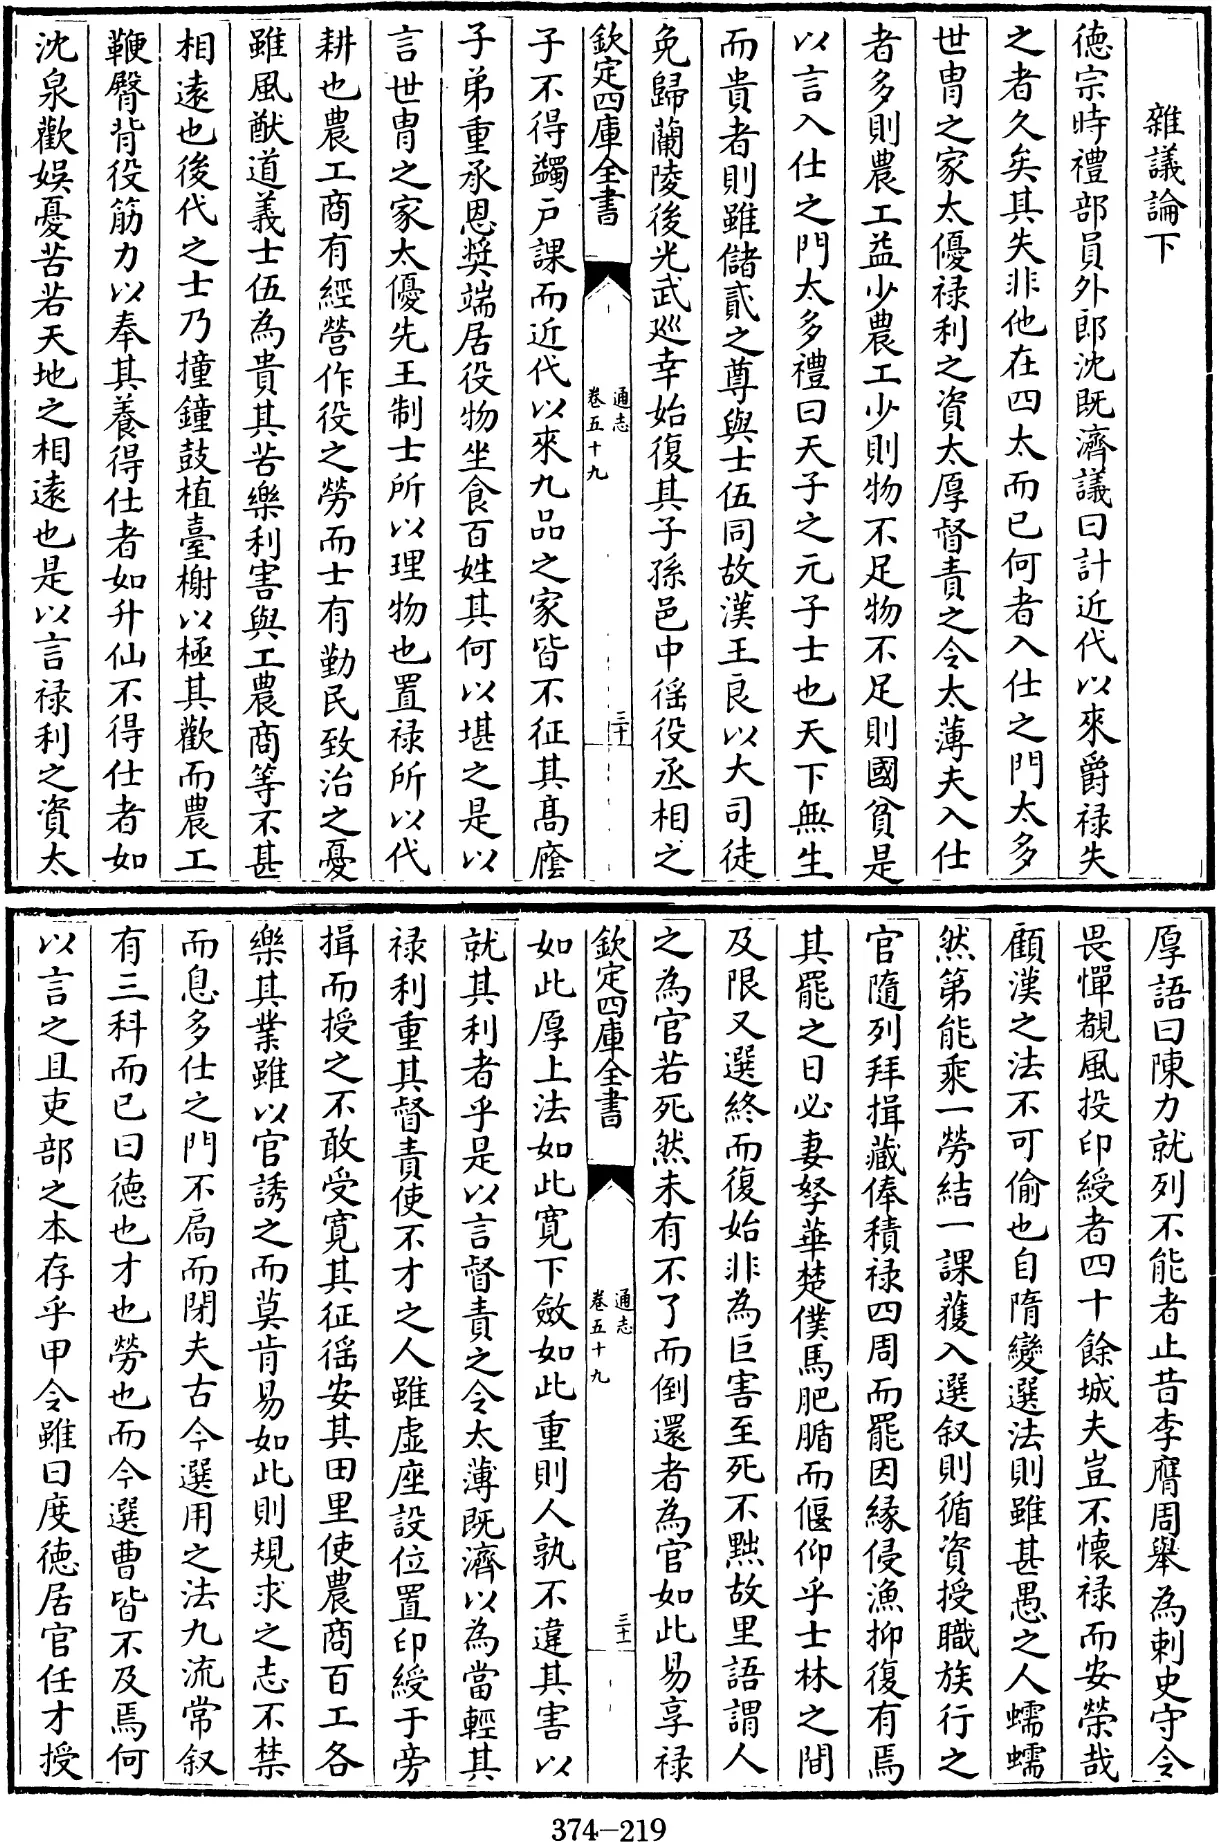 雜議論下
德宗時禮部員外郎沈既濟議曰計近代以來爵祿失
之者久矣其失非他在四太而已何者入仕之門太多
世胄之家太優祿利之資太厚督責之令太薄夫入仕
者多則農工益少農工少則物不足物不足則國貧是
以言入仕之門太多禮曰天子之元子士也天下無生
而貴者則雖儲貳之尊與士伍同故漢王良以大司徒
免歸蘭陵後光武廵幸始復其子孫邑中徭役丞相之
欽定四庫全書
通志
卷五十九
三十
子不得蠲戶課而近代以來九品之家皆不征其高䕃
子弟重承恩奬端居役物坐食百姓其何以堪之是以
言世胄之家太優先王制士所以理物也置祿所以代
耕也農工商有經營作役之勞而士有勤民致治之憂
雖風猷道義士伍為貴其苦樂利害與工農商等不甚
相遠也後代之士乃撞鐘鼓植臺榭以極其歡而農工
鞭臀背役筋力以奉其養得仕者如升仙不得仕者如
沈泉歡娛憂苦若天地之相遠也是以言祿利之資太
厚語曰陳力就列不能者止昔李膺周舉為刺史守令
畏憚覩風投印綬者四十餘城夫豈不懷祿而安榮哉
顧漢之法不可偷也自隋變選法則雖甚愚之人蠕蠕
然第能乘一勞結一課獲入選叙則循資授職族行之
官隨列拜揖藏俸積祿四周而罷因緣侵漁抑復有焉
其罷之日必妻孥華楚僕馬肥腯而偃仰乎士林之間
及限又選終而復始非為巨害至死不黜故里語謂人
之為官若死然未有不了而倒還者為官如此易享祿
欽定四庫全書
通志
卷五十九
三十一
如此厚上法如此寛下斂如此重則人孰不違其害以
就其利者乎是以言督責之令太薄既濟以為當輕其
祿利重其督責使不才之人雖虛座設位置印綬于旁
揖而授之不敢受寛其征徭安其田里使農商百工各
樂其業雖以官誘之而莫肯易如此則規求之志不禁
而息多仕之門不扃而閉夫古今選用之法九流常叙
有三科而已曰德也才也勞也而今選曹皆不及焉何
以言之且吏部之本存乎甲令雖曰度德居官任才授
374-219